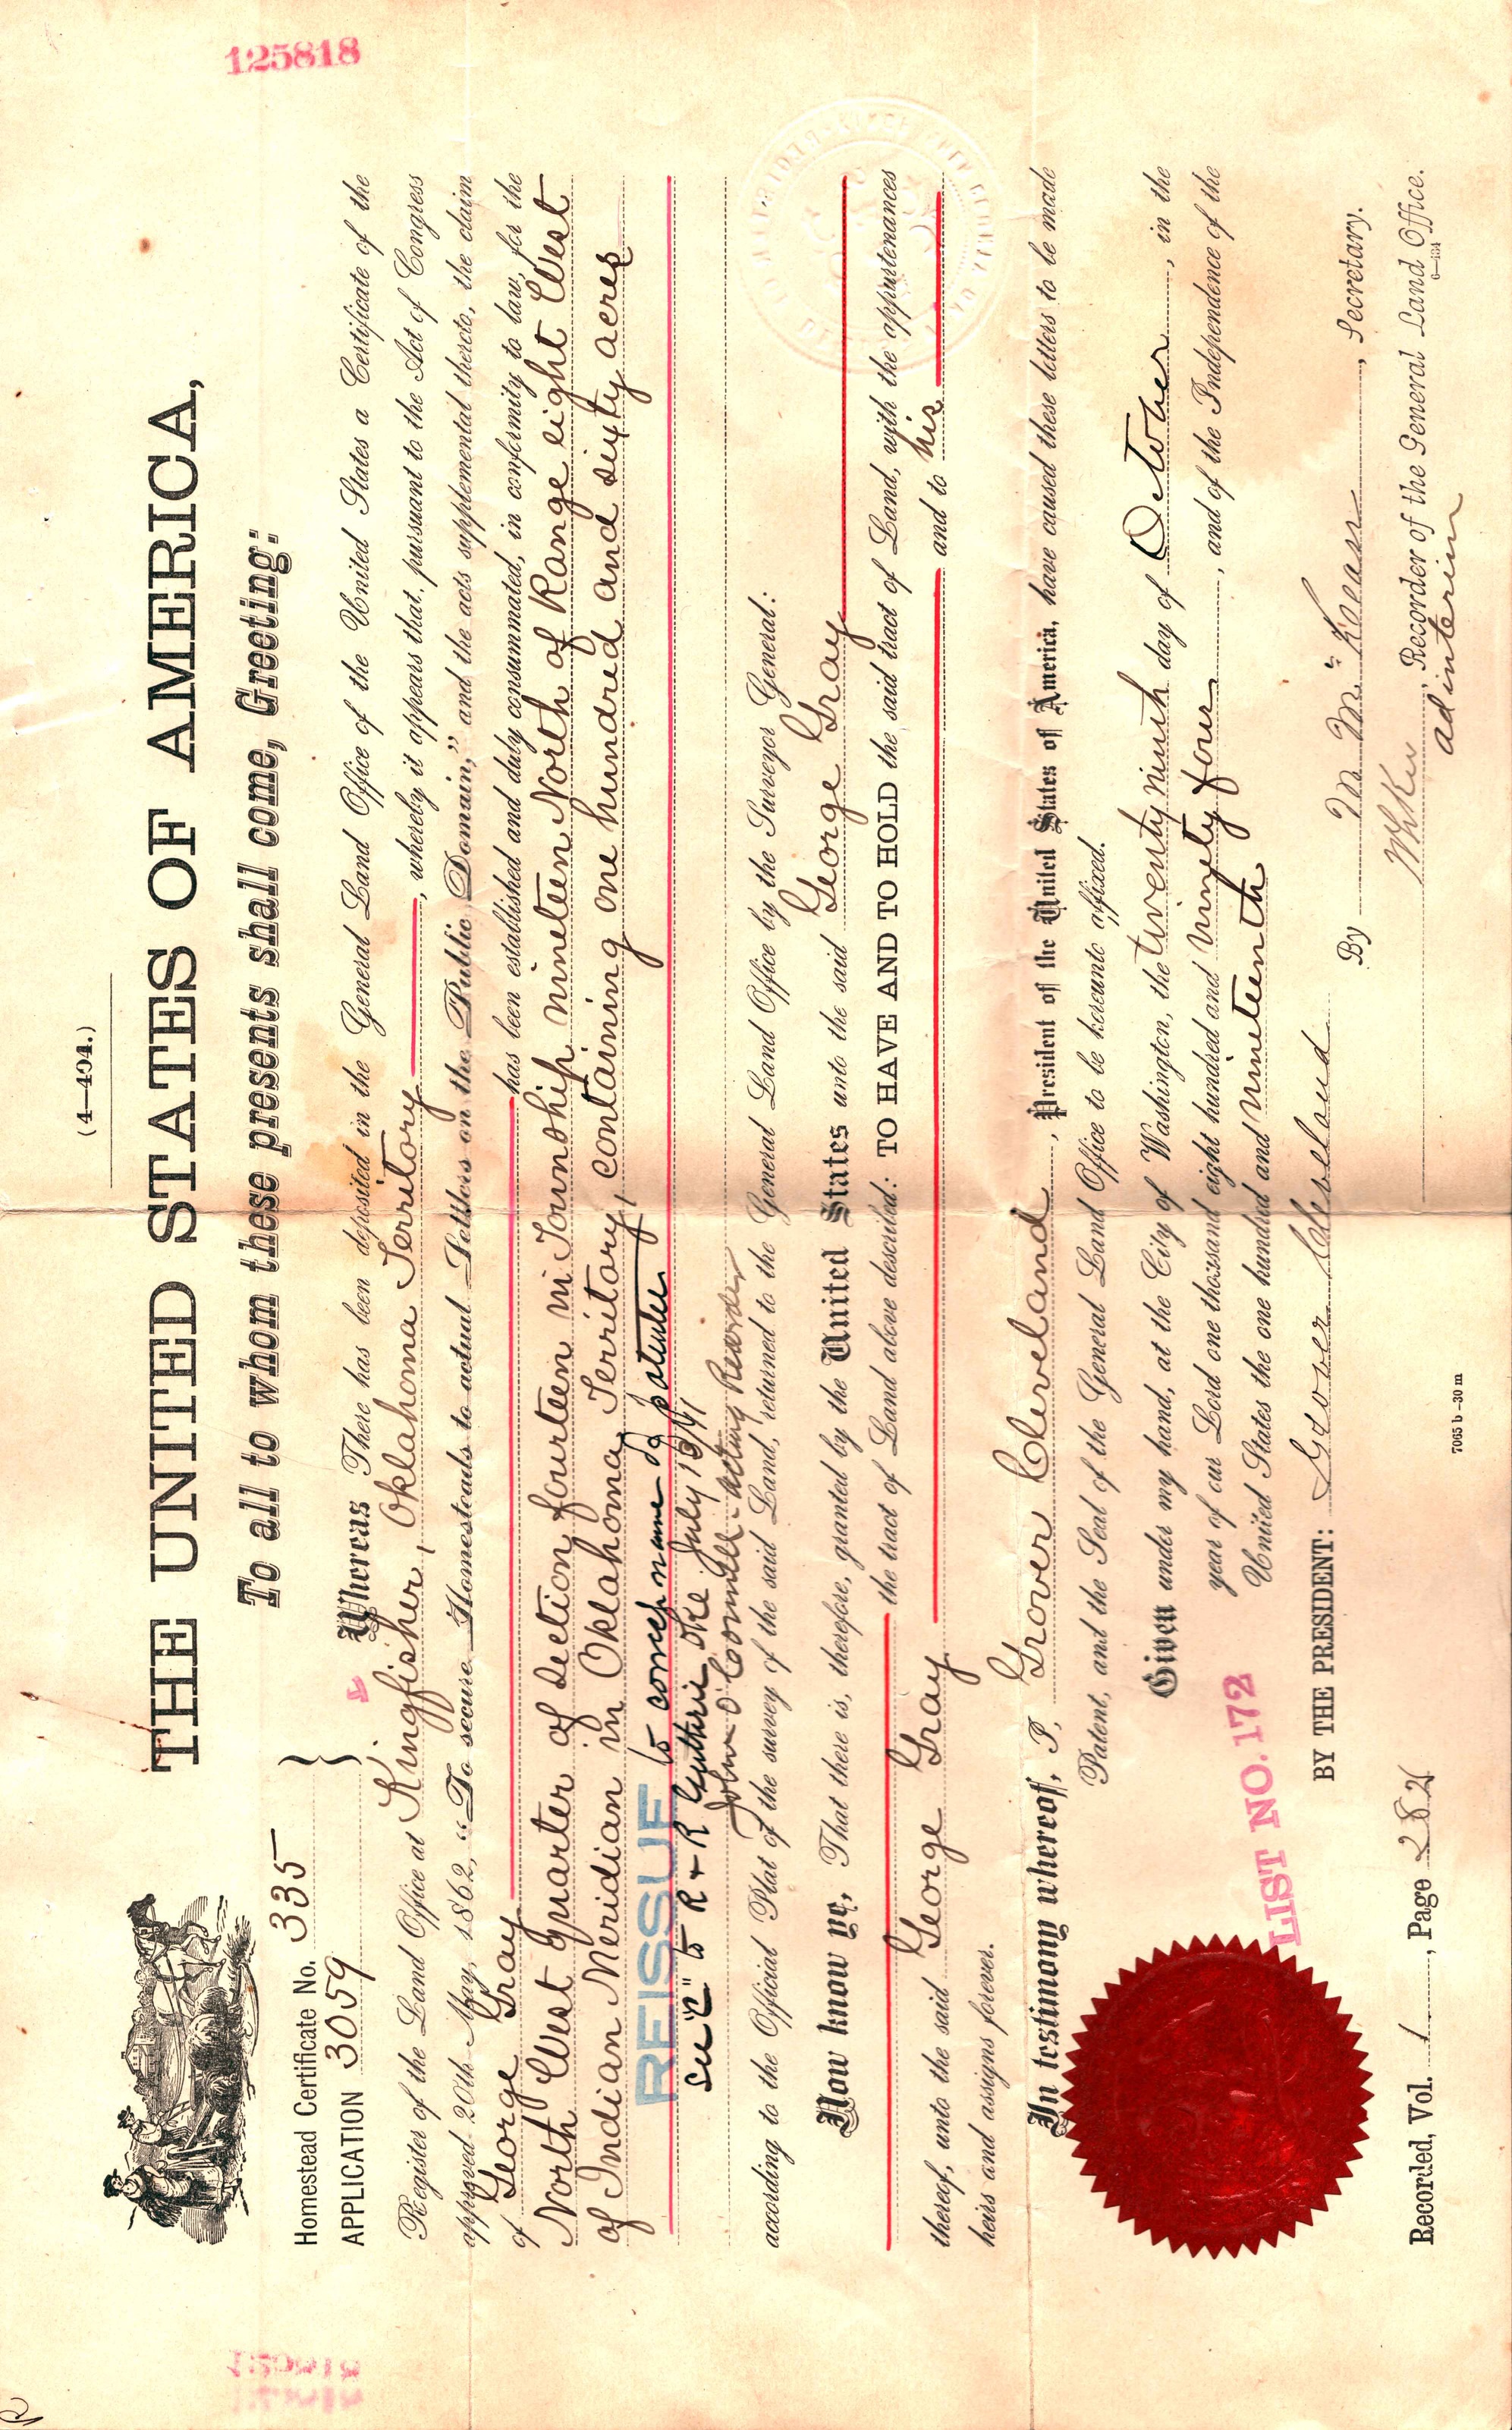 (4—404.)
125818
THE UNITED STATES OF AMERICA,
To all to whom these presents shall come, Greeting:
Homestead Certificate No. 335
APPLICATION 3059
Whereas There has been deposited in the General Land Office of the United States a Certificate of the
Register of the Land Office at Kingfisher, Oklahoma Territory, whereby it appears that, pursuant to the Act of Congress
approved 20th May, 1862, "To secure Homesteads to actual Settlers on the Public Domain," and the acts supplemental thereto, the claim
of George Gray has been established and duly consummated, in conformity to law, for the
North West quarter of Section fourteen in Township nineteen North of Range eight West
of Indian Meridian in Oklahoma Territory, containing one hundred and sixty acres
REISSUE to correct name of patentee
See "C" to R & R Guthrie Oke July 13/91
John O'Connell - Acting Recorder
according to the Official Plat of the survey of the said Land, returned to the General Land Office by the Surveyor General:
Now know ye, That there is, therefore, granted by the United States unto the said George Gray
the tract of Land above described: TO HAVE AND TO HOLD the said tract of Land, with the appurtenances
thereof, unto the said George Gray and to his
heirs and assigns forever.
In testimony whereof, I, Grover Cleveland, President of the United States of America, have caused these letters to be made
Patent, and the Seal of the General Land Office to be hereunto affixed.
Given under my hand, at the City of Washington, the twenty ninth day of October, in the
year of our Lord one thousand eight hundred and ninety four, and of the Independence of the
United States the one hundred and nineteenth
LIST NO. 172
BY THE PRESIDENT: Grover Cleveland
By M. McKean, Secretary.
Recorded, Vol. 1, Page 282
Recorder of the General Land Office.
ad interim
6—134
7065 b—30 m